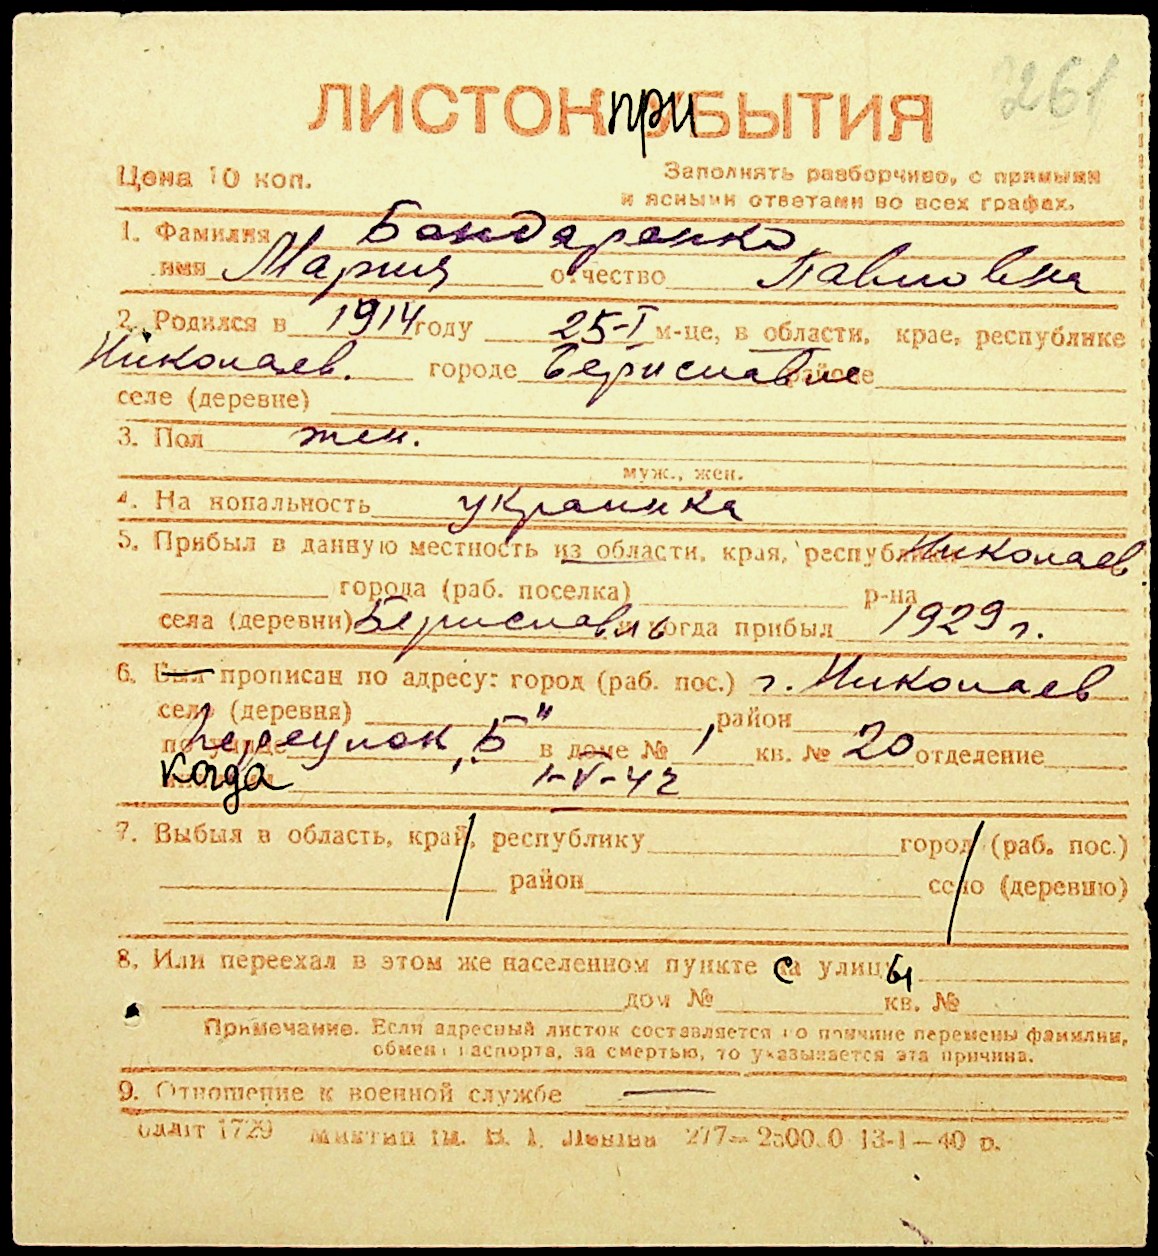 261
ЛИСТОК при БЫТИЯ
Цена 10 коп.
Заполнять разборчиво, с прямыми
и ясными ответами во всех графах.
1. Фамилия Бондаренко
имя Мария отчество Павловна
2. Родился в 1914 году 25-I м-це, в области, крае, республике
Николаев. городе Бериславле районе
селе (деревне)
3. Пол жен.
муж., жен.
4. На иональность украинка
5. Прибыл в данную местность из области, края, республики Николаев
города (раб. поселка) р-на
села (деревни) Бериславль и когда прибыл 1929 г.
6. Был прописан по адресу: город (раб. пос.) г. Николаев
село (деревня) район
по улице переулок „Б" в доме № 1 кв. № 20 отделение
когда 1-V-42
7. Выбыл в область, край, республику город (раб. пос.)
район село (деревню)
8. Или переехал в этом же населенном пункте с улицы
дом № кв. №
Примечание. Если адресный листок составляется по причине перемены фамилии,
обмена паспорта, за смертью, то указывается эта причина.
9. Отношение к военной службе —
1729 им. В. И. Ленина 277— 13-1—40 р.